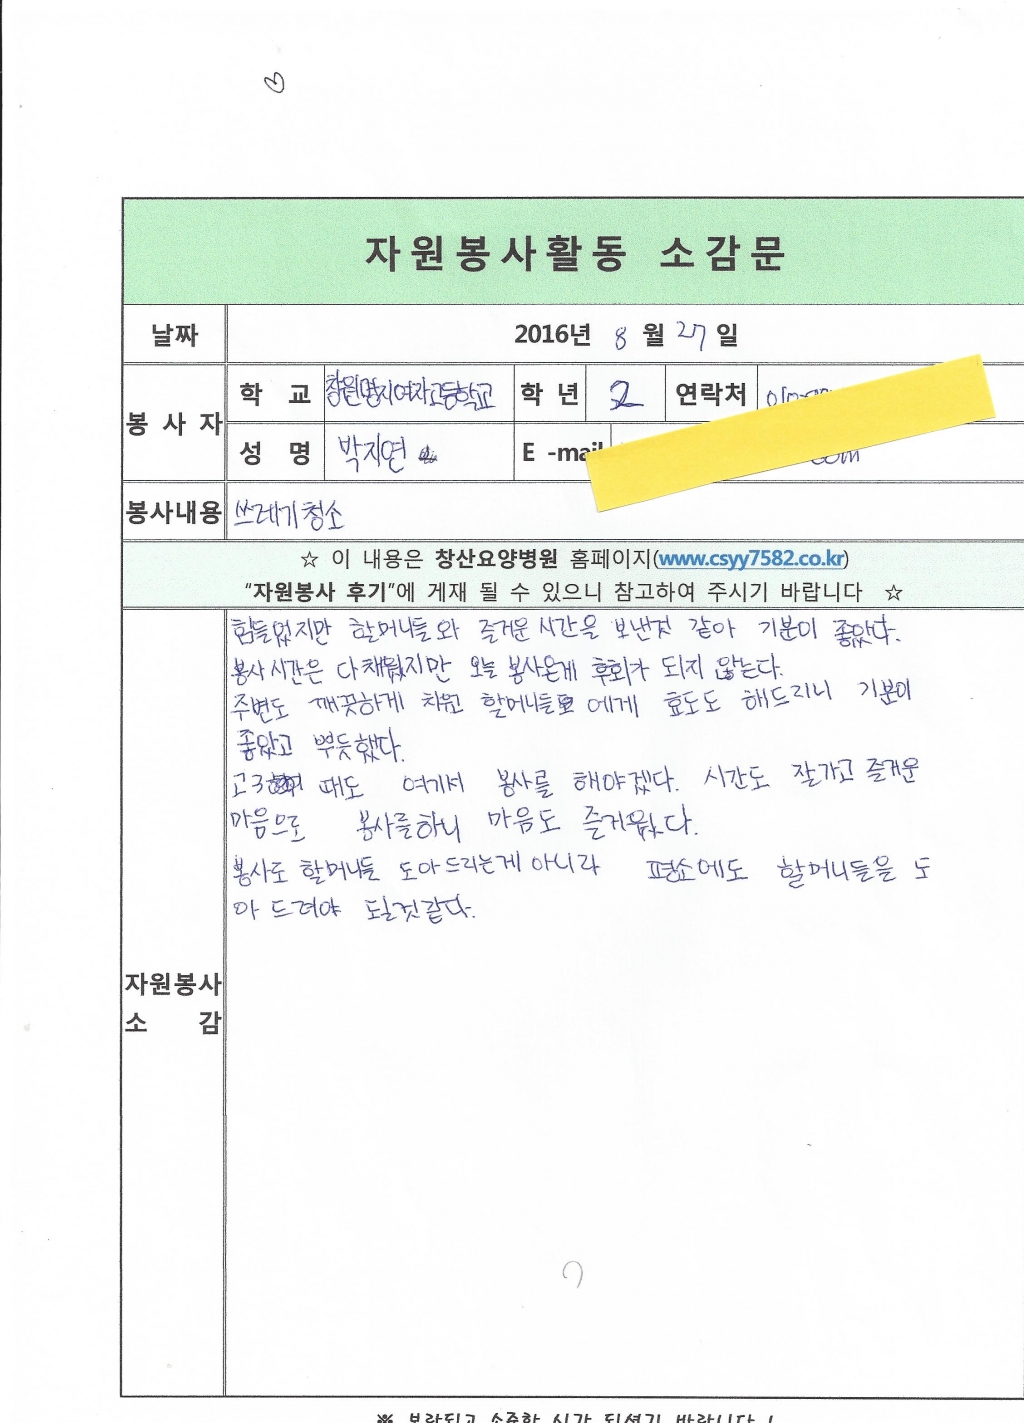 자원봉사활동 소감문
날짜 2016년 8 월 27 일
봉 사 자 학 교 창원명지여자고등학교 학 년 2 연락처
성 명 박지연 E -mail com
봉사내용 쓰레기 청소
☆ 이 내용은 창산요양병원 홈페이지(www.csyy7582.co.kr)
“자원봉사 후기”에 게재 될 수 있으니 참고하여 주시기 바랍니다 ☆
힘들었지만 할머니들와 즐거운 시간을 보낸것 같아 기분이 좋았다.
봉사 시간은 다채웠지만 오늘 봉사온게 후회가 되지 않는다.
주변도 깨끗하게 치원 할머니들 에게 효도도 해드리니 기분이
좋았고 뿌듯했다.
고3 때도 여기서 봉사를 해야겠다. 시간도 잘가고 즐거운
마음으로 봉사를하니 마음도 즐거웠다.
봉사로 할머니들 도아드리는게 아니라 평소에도 할머니들을 도
아 드려야 될것같다.
자원봉사
소 감
※ 보람되고 소중한 시간 되셨기 바랍니다 !